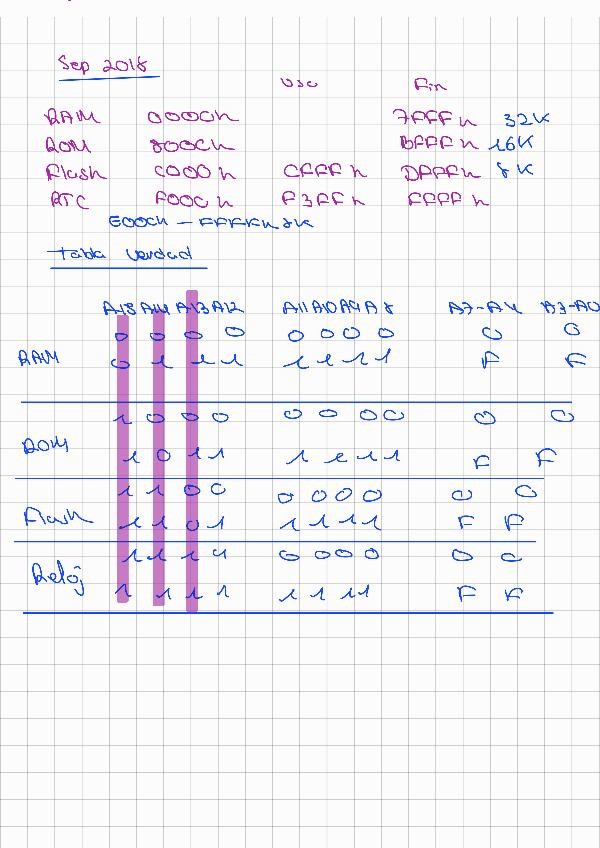 Sep 2018
uso Fin
RAM 0000h 7FFF h 32K
ROM 8000h BFFF h 16K
Flash C000 h CFFF h DFFF h 8K
RTC F000 h F3FF h FFFF h
E000h - FFFFh 8K
Tabla verdad
A15 A14 A13 A12 A11 A10 A9 A8 A7-A4 A3-A0
0 0 0 0 0 0 0 0 0 0
RAM 0 1 1 1 1 1 1 1 F F
1 0 0 0 0 0 0 0 0 0
ROM 1 0 1 1 1 1 1 1 F F
1 1 0 0 0 0 0 0 0 0
Flash 1 1 0 1 1 1 1 1 F F
1 1 1 1 0 0 0 0 0 0
Reloj 1 1 1 1 1 1 1 1 F F